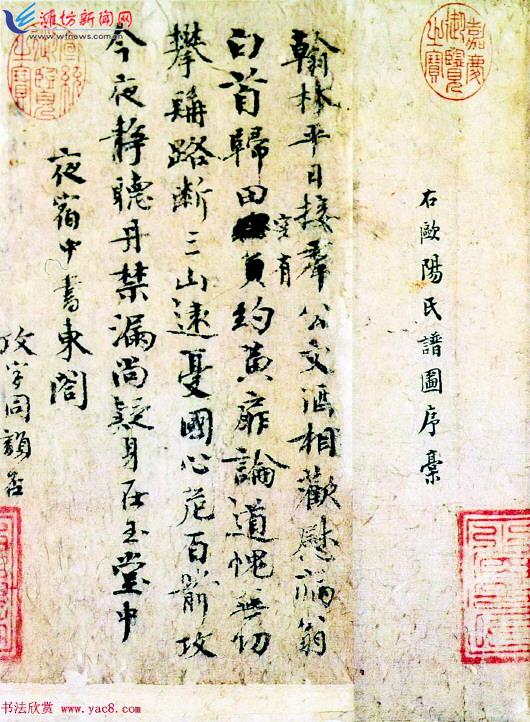 潍坊新闻网
www.wfnews.com.cn
嘉慶御覽之寶
右歐陽氏譜圖序稾
翰林平日接羣公文酒相歡慰病翁
白首歸田負約黃扉論道愧無功
空有
攀髯路斷三山遠憂國心危百箭攻
今夜靜聽丹禁漏尚疑身在玉堂中
夜宿中書東閣
攻字同韻否
宣統御覽之寶
书法欣赏 www.yac8.com